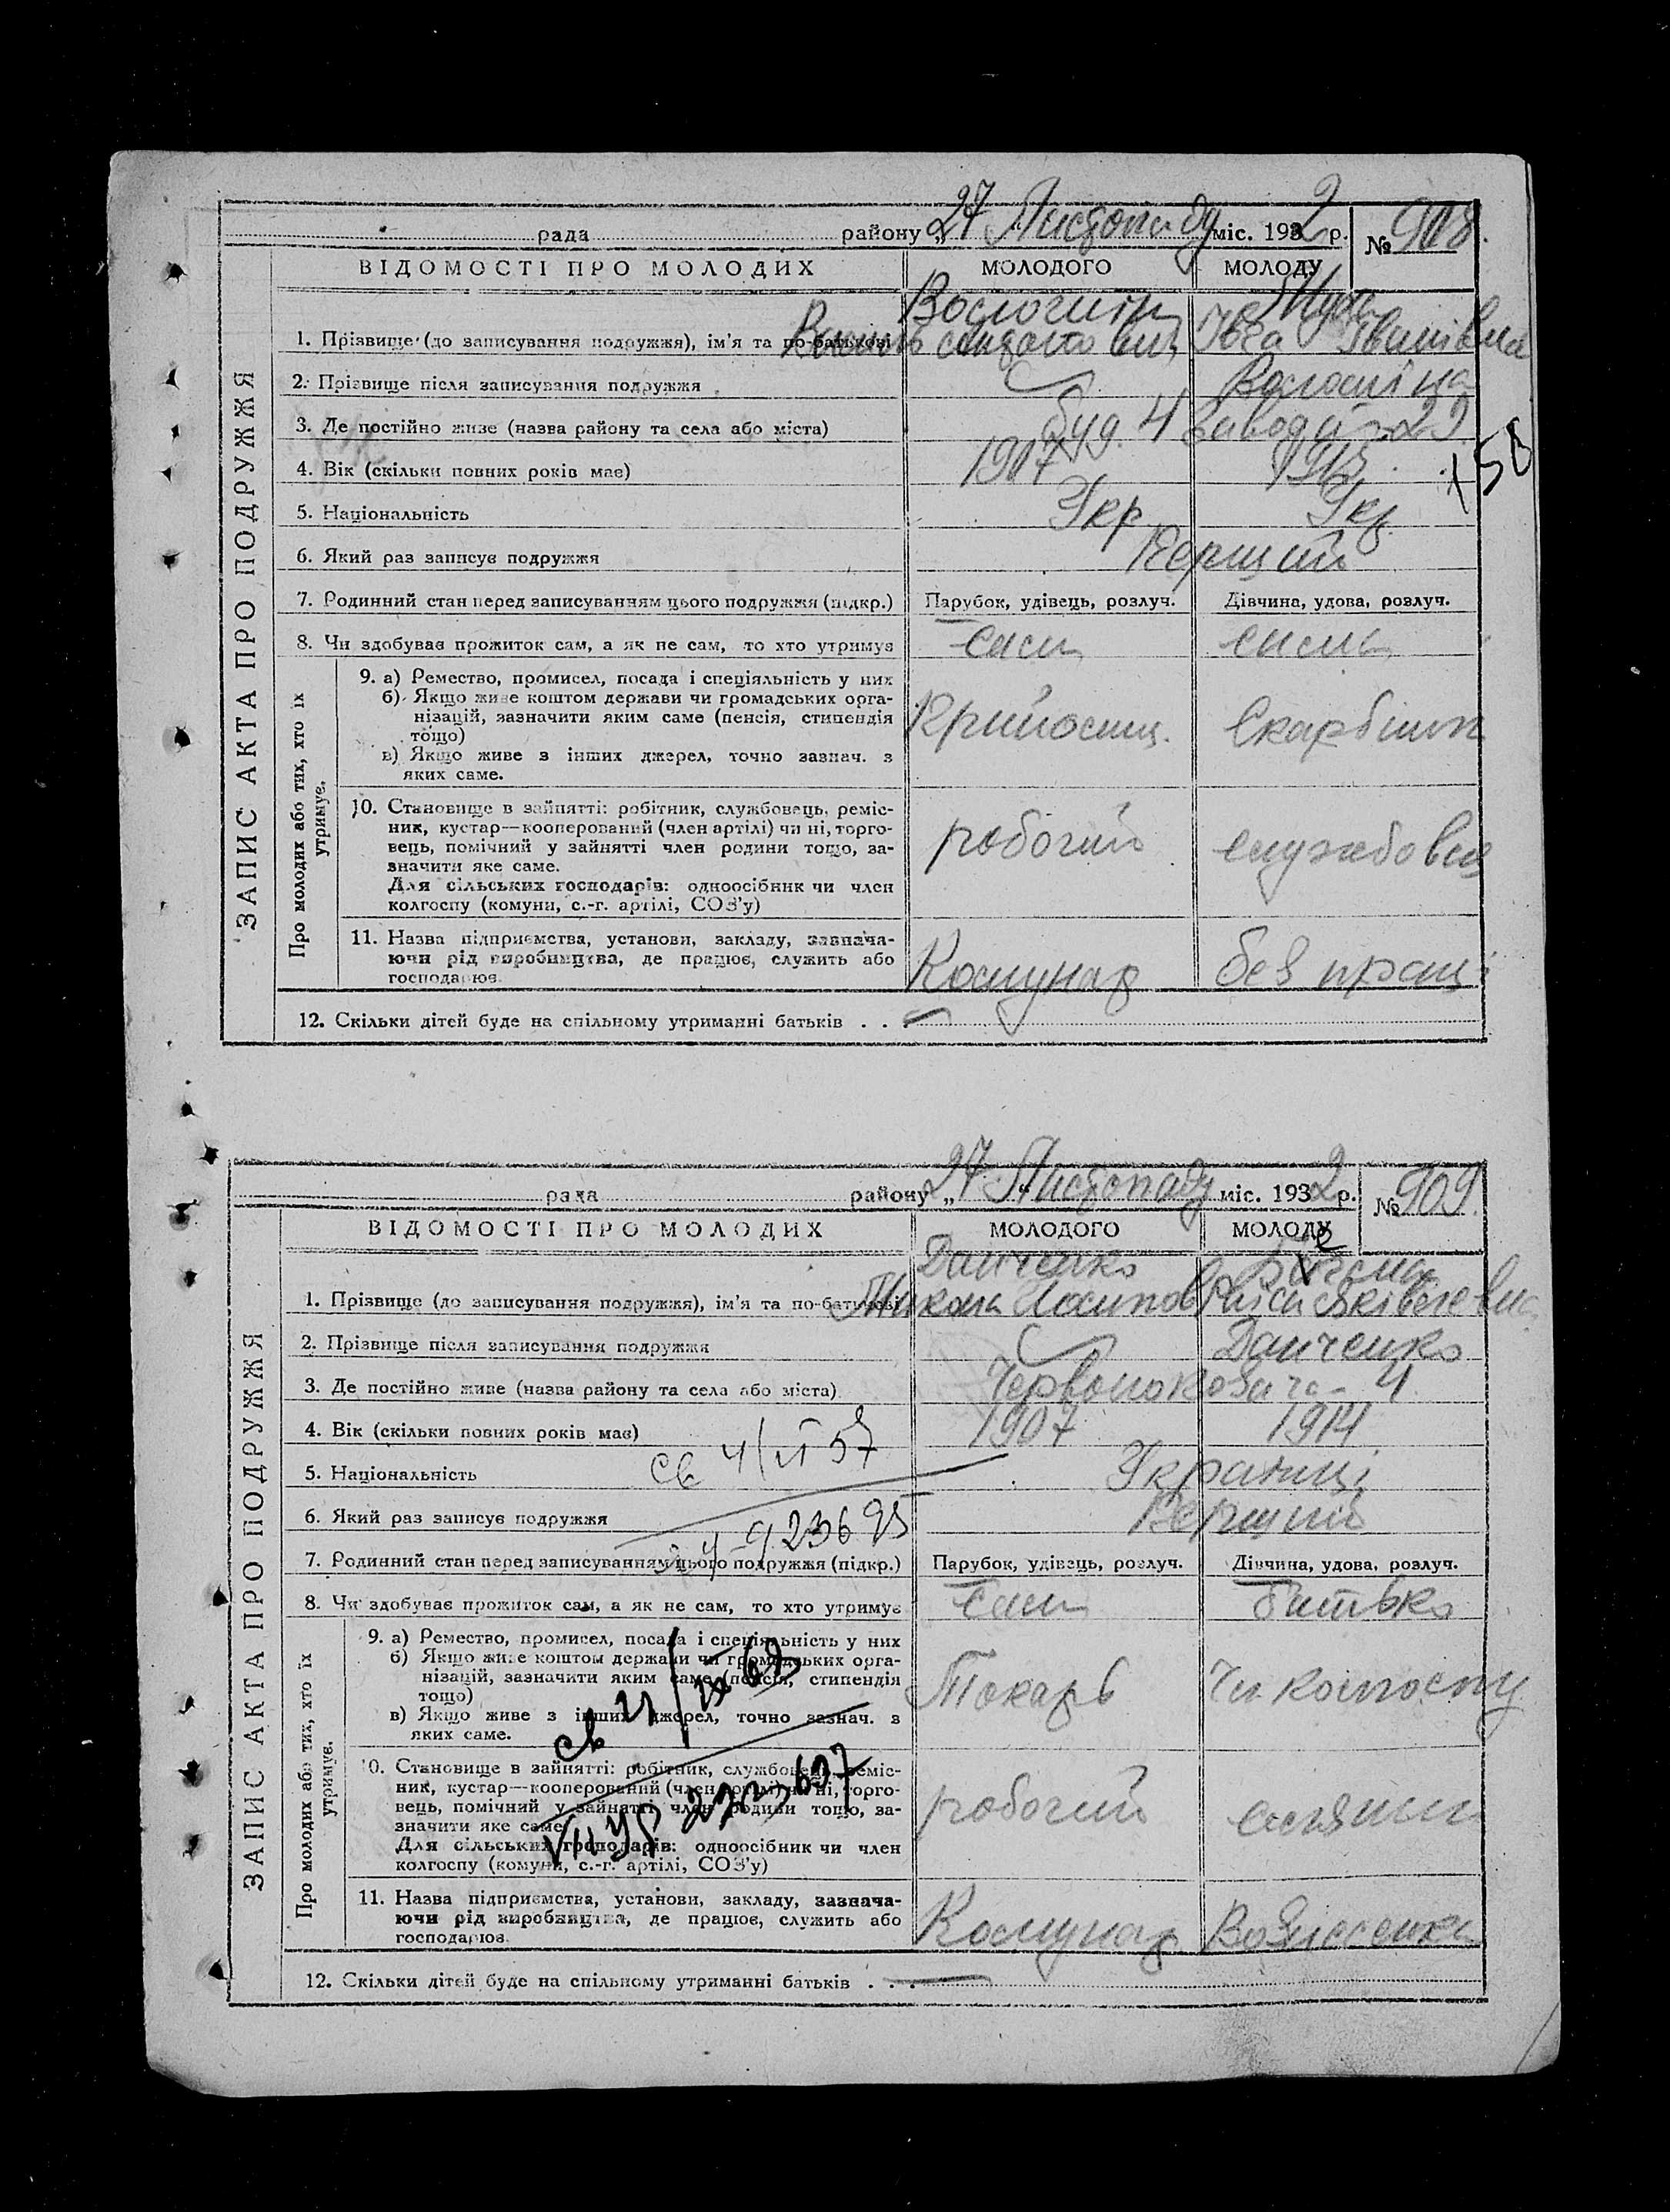 рада району „27 Листопаду міс. 1932 р. № 908.
ВІДОМОСТІ ПРО МОЛОДИХ МОЛОДОГО МОЛОДУ
ЗАПИС АКТА ПРО ПОДРУЖЖЯ
1. Прізвище (до записування подружжя), ім'я та по-батькові Іванівна
2. Прізвище після записування подружжя
3. Де постійно живе (назва району та села або міста) буд. 4
4. Вік (скільки повних років має) 1907
5. Національність Укр Укр.
6. Який раз записує подружжя Перший
7. Родинний стан перед записуванням цього подружжя (підкр.) Парубок, удівець, розлуч. Дівчина, удова, розлуч.
8. Чи здобуває прожиток сам, а як не сам, то хто утримує сам сама
Про молодих або тих, хто їх утримує.
9. а) Ремество, промисел, посада і спеціяльність у них
б) Якщо живе коштом держави чи громадських орга-
нізацій, зазначити яким саме (пенсія, стипендія
тощо)
в) Якщо живе з інших джерел, точно зазнач. з
яких саме.
10. Становище в зайнятті: робітник, службовець, реміс-
ник, кустар—кооперований (член артілі) чи ні, торго-
вець, помічний у зайнятті член родини тощо, за-
значити яке саме.
робочий службовця
Для сільських господарів: одноосібник чи член
колгоспу (комуни, с.-г. артілі, СОЗ'у)
11. Назва підприємства, установи, закладу, зазнача-
ючи рід виробництва, де працює, служить або
господарює.
Комунар без праці
12. Скільки дітей буде на спільному утриманні батьків . . —
рада району „27 Листопаду міс. 1932 р. № 909.
ВІДОМОСТІ ПРО МОЛОДИХ МОЛОДОГО МОЛОДУ
ЗАПИС АКТА ПРО ПОДРУЖЖЯ
Данченко
1. Прізвище (до записування подружжя), ім'я та по-батькові
2. Прізвище після записування подружжя Данченко
3. Де постійно живе (назва району та села або міста)
4. Вік (скільки повних років має) 1907 1914
5. Національність Українці
6. Який раз записує подружжя Перший
7. Родинний стан перед записуванням цього подружжя (підкр.) Парубок, удівець, розлуч. Дівчина, удова, розлуч.
8. Чи здобуває прожиток сам, а як не сам, то хто утримує сам батько
Про молодих або тих, хто їх утримує.
9. а) Ремество, промисел, посада і спеціяльність у них
б) Якщо живе коштом держави чи громадських орга-
нізацій, зазначити яким саме (пенсія, стипендія
тощо)
Токарь Чл. колгоспу
в) Якщо живе з інших джерел, точно зазнач. з
яких саме.
10. Становище в зайнятті: робітник, службовець, реміс-
ник, кустар—кооперований (член артілі) чи ні, торго-
вець, помічний у зайнятті член родини тощо, за-
значити яке саме.
робочий селянин
Для сільських господарів: одноосібник чи член
колгоспу (комуни, с.-г. артілі, СОЗ'у)
11. Назва підприємства, установи, закладу, зазнача-
ючи рід виробництва, де працює, служить або
господарює.
Комунар Вознесенка
12. Скільки дітей буде на спільному утриманні батьків . . . —